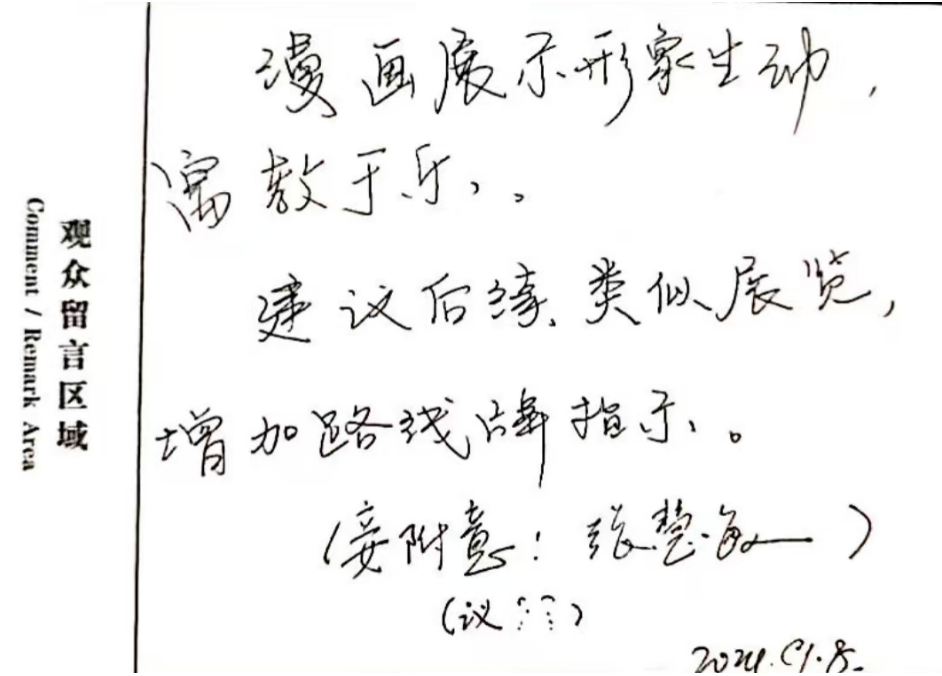 观众留言区域
Comment / Remark Area
漫画展示形象生动,
寓教于乐。
建议后续类似展览,
增加路线牌指示。
附意: 张慧敏)
(议
2024. 8.